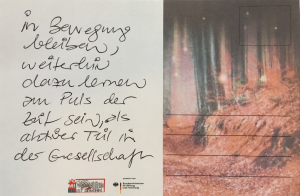 in Bewegung
bleiben,
weiterhin
dazu lernen
am Puls der
Zeit sein, als
aktiver Teil in
der Gesellschaft